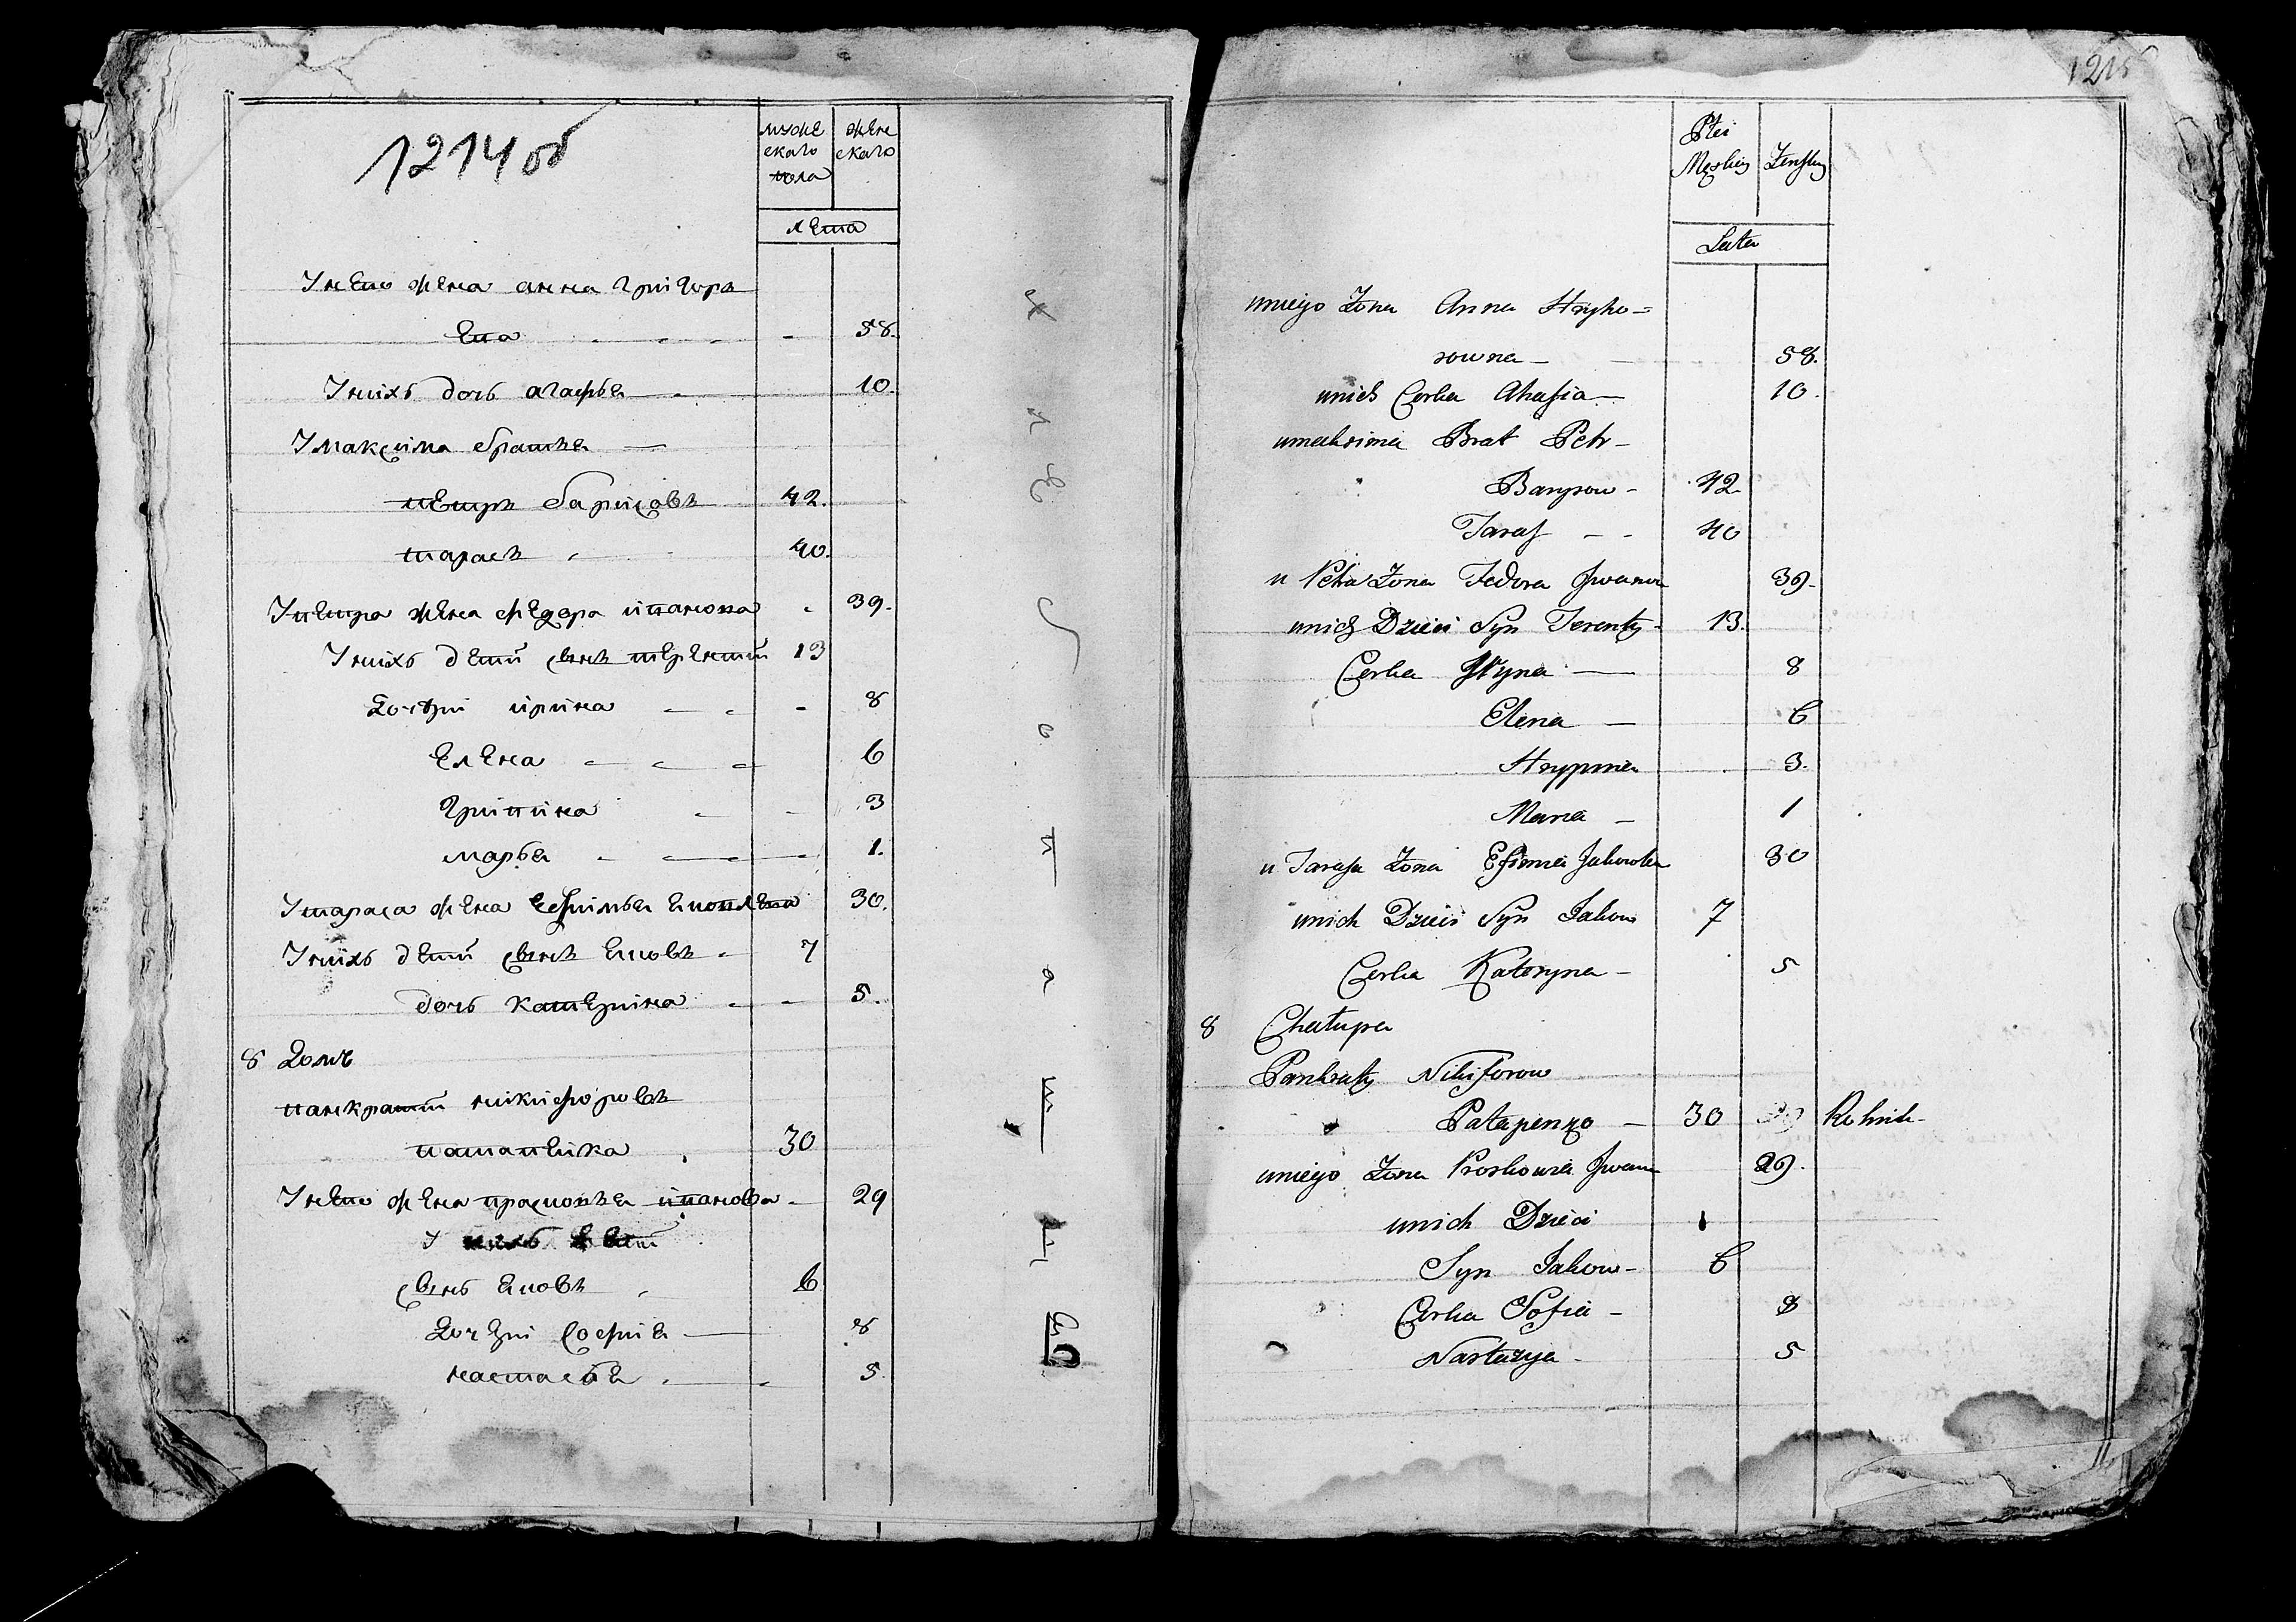 1214 об
муже
ского
пола
жен
ского
лета
Унего жена анна григорь
ева - 58.
Унихъ дочь агафья 10.
Умаксима братья
петръ барисовъ 42.
тарасъ 40.
Упетра жена федора иванова 39.
Унихъ дети сынъ терентий 13
дочери ирина 8
елена 6
грипина 3
марья 1.
Утараса жена ефимья 30.
Унихъ дети сынъ яковъ 7
дочь катерина 5.
8 домъ
панкратий никифоровъ
потапенка 30
Унего жена прасковья иванова 29
У нихъ дети
сынъ яковъ 6
дочери софия 8
настасья 5.
1215
Płci
Męskiey Żeńskiey
Lata
uniego Żona Anna Hryho=
rowna 58.
unich Corka Ahafia 10.
umaksima Brat Petr
Barysow 42
Taras 40
u Petra Żona Fedora Jwanowa 39.
unich Dzieci Syn Terenty 13.
Corka Jryna 8
Elena 6
Hrypina 3.
Maria 1
u Tarasa Żona Efimia Jakowlewa 30
unich Dzieci Syn Jakow 7
Corka Kateryna 5
8 Chałupa
Pankraty Nikiforow
Patapenko 30
uniego Żona Proskowia Jwanowa 29.
unich Dzieci
Syn Jakow 6
Corka Sofia 8
Nastazya 5